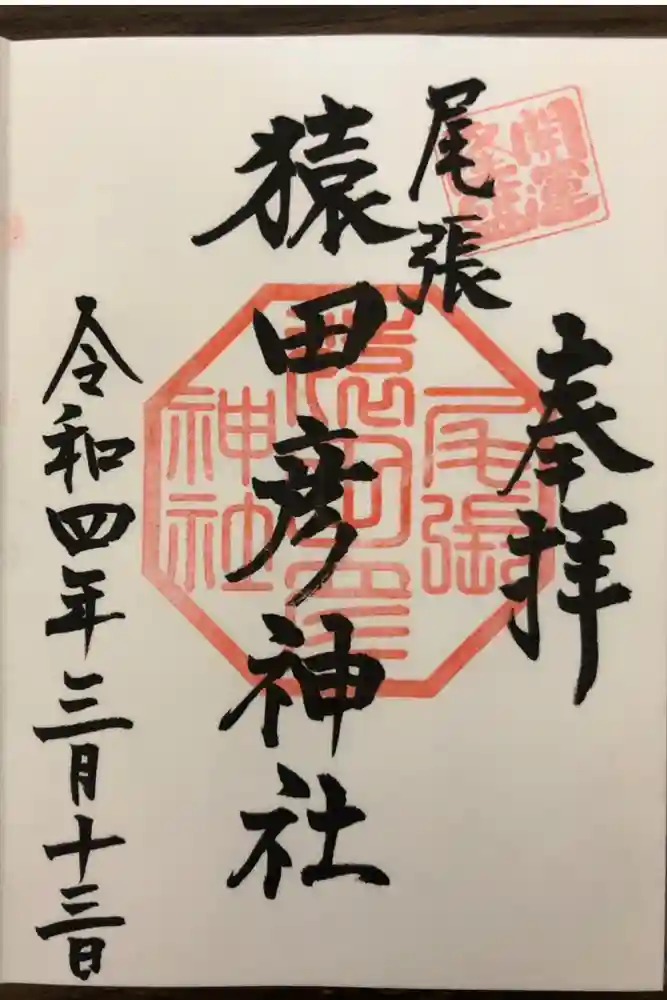 奉拝
尾張
猿田彦神社
令和四年三月十三日
開運
尾張
猿田彦
神社